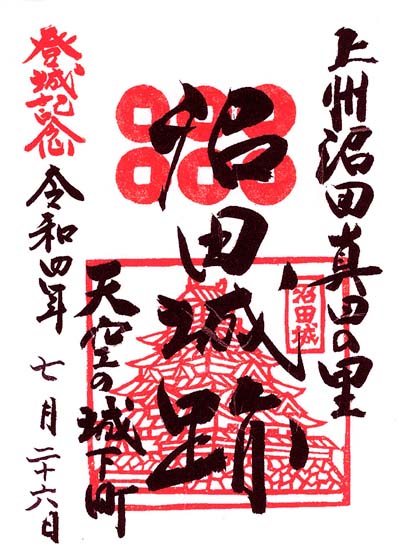 上州沼田真田の里
沼田城
沼田城跡
天空の城下町
登城記念
令和四年 七月二十六日